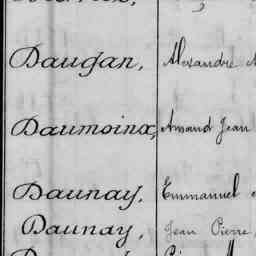 Daugan, Alexandre
Daumoinx, Amand Jean
Daunay, Emmanuel
Daunay, Jean Pierre